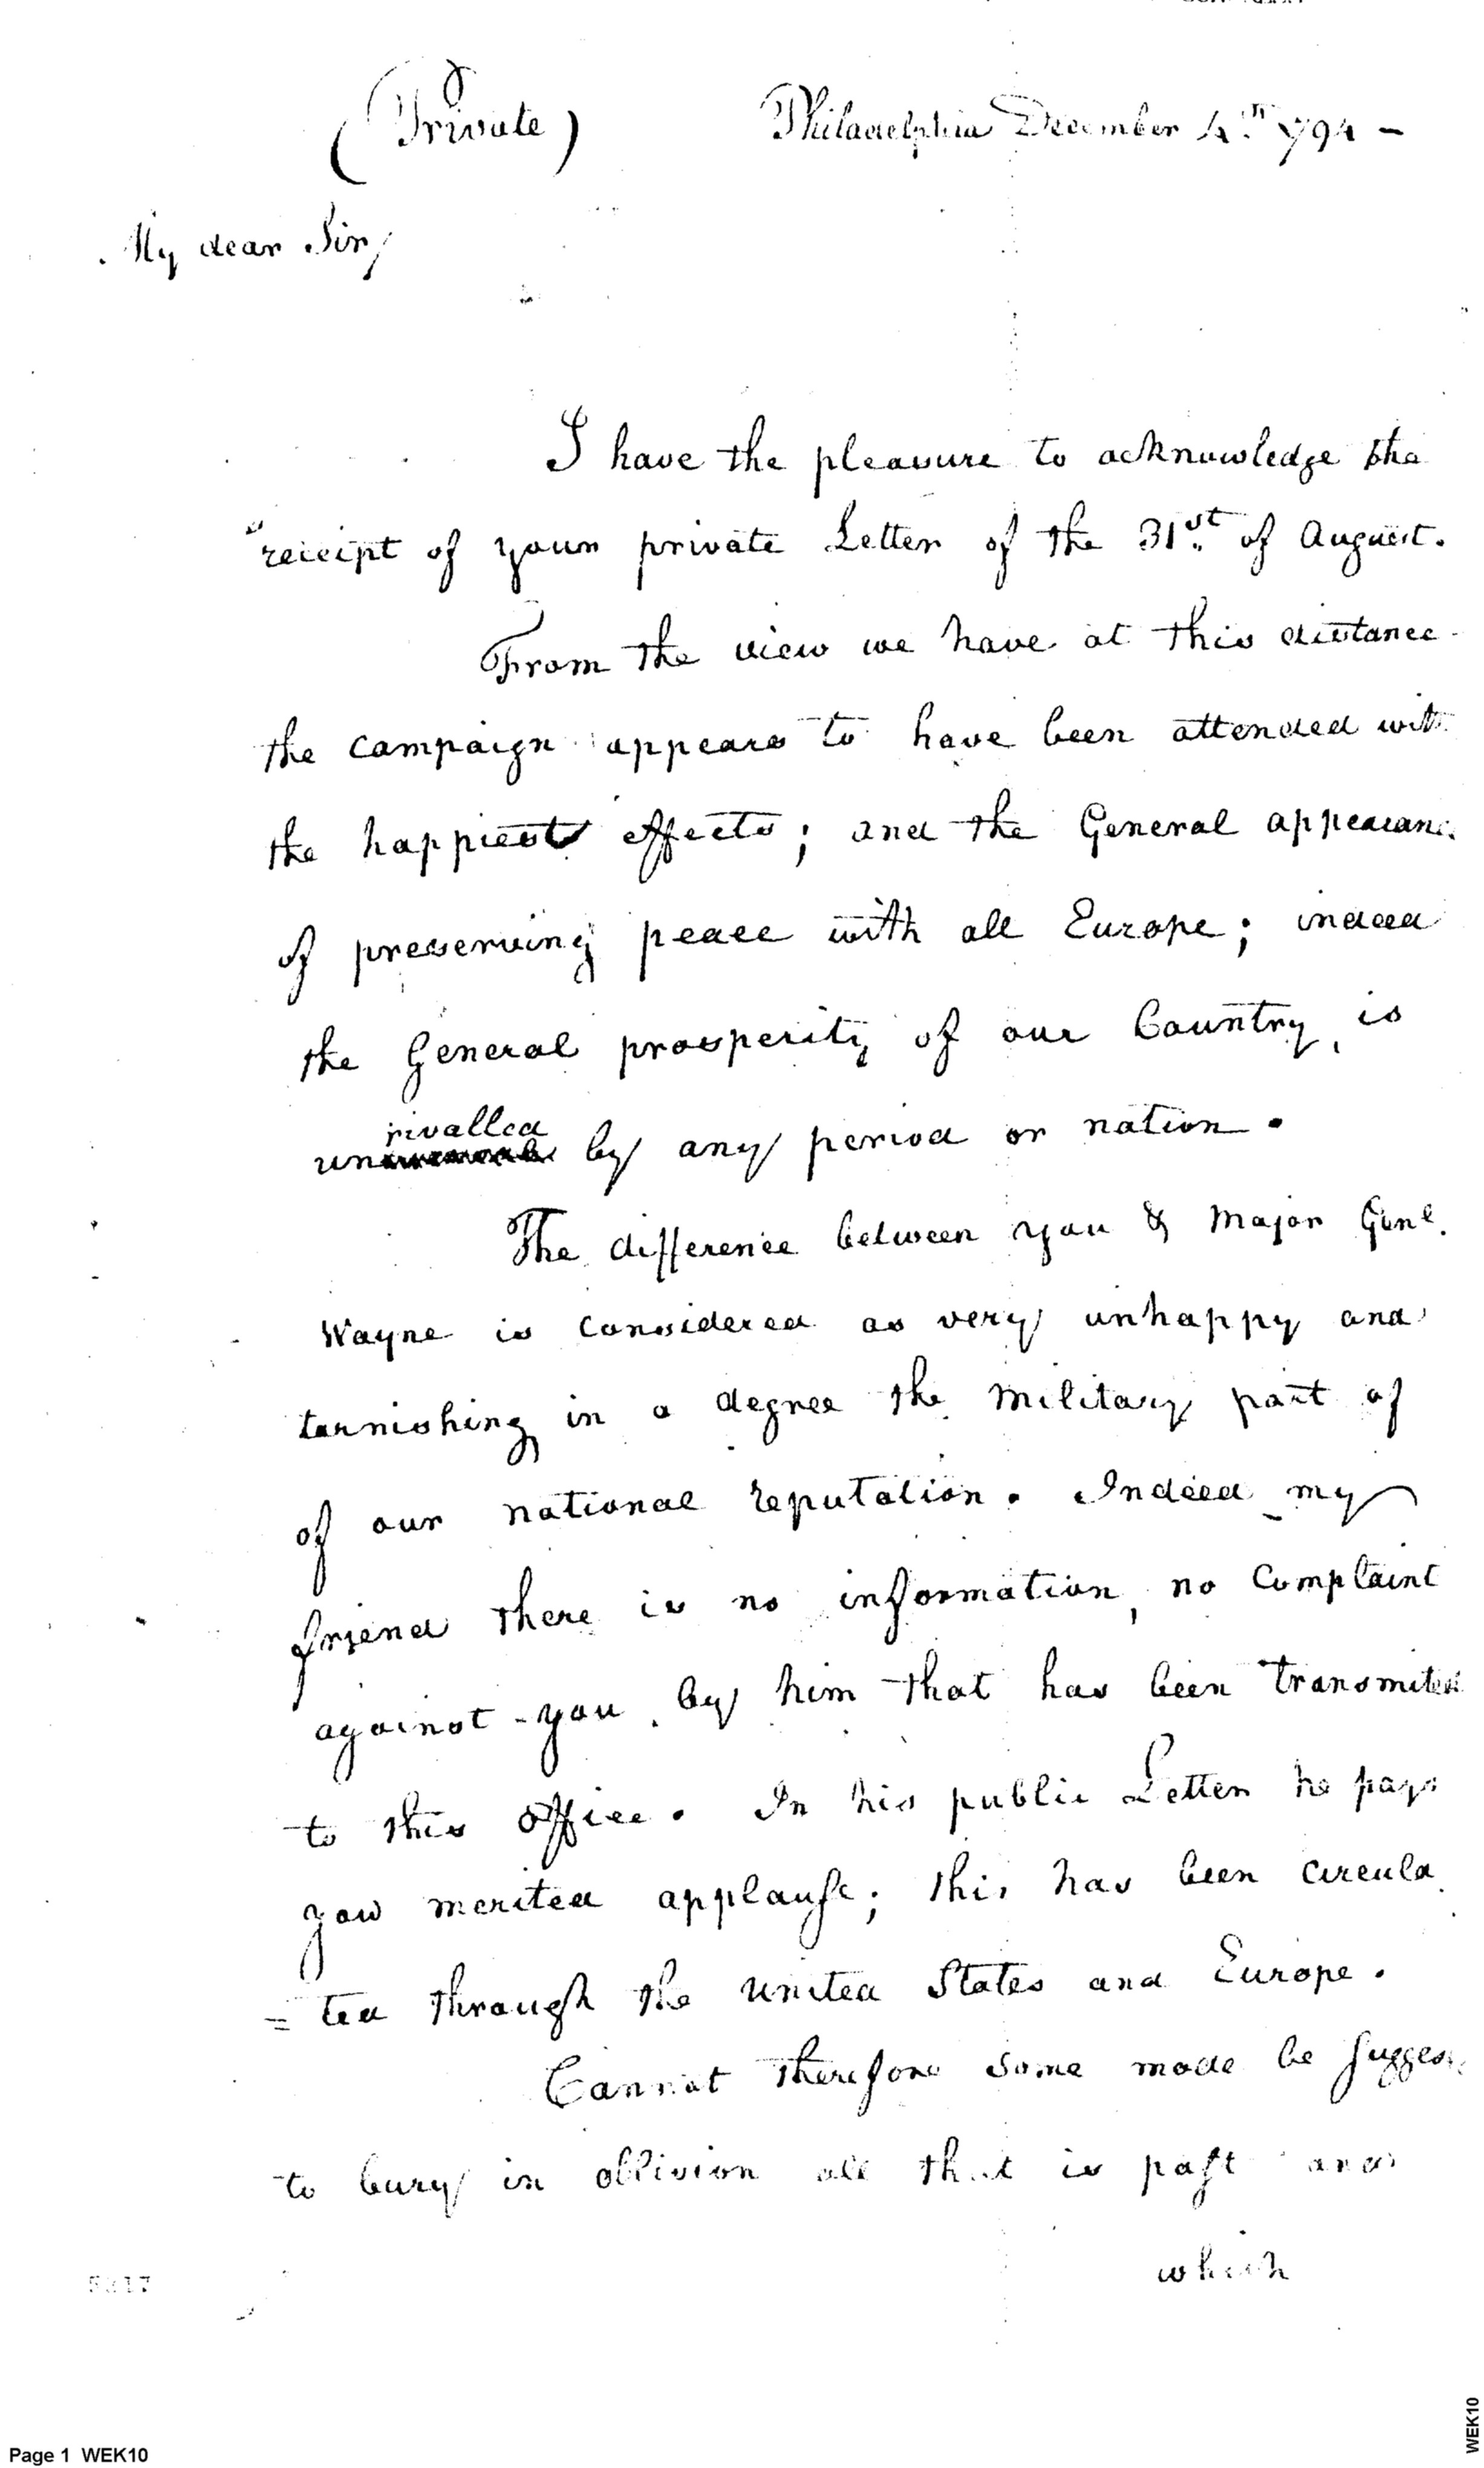 (Private)
Philadelphia December 4th 1794 -
My dear Sir,
I have the pleasure to acknowledge the
receipt of your private Letter of the 31st of August.
From the view we have at this distance
the campaign appears to have been attended with
the happiest effects; and the General appearance
of preserving peace with all Europe; indeed
the General prosperity of our Country, is
unrivalled by any period or nation.
The difference between you & Major Genl.
Wayne is considered as very unhappy and
tarnishing in a degree the military part of
of our national reputation. Indeed my
friend there is no information, no complaint
against you by him that has been transmited
to this office. In his public Letter he pays
you merited applause; this has been circula
= ted through the united States and Europe.
Cannot therefore some mode be sugges
to bury in oblivion all that is past and
which
5217
Page 1 WEK10
WEK10